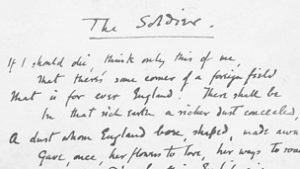 The Soldier.
If I should die, think only this of me,
That there's some corner of a foreign field
That is for ever England. There shall be
In that rich earth a richer dust concealed,
A dust whom England bore, shaped, made aware,
Gave, once, her flowers to love, her ways to roam,